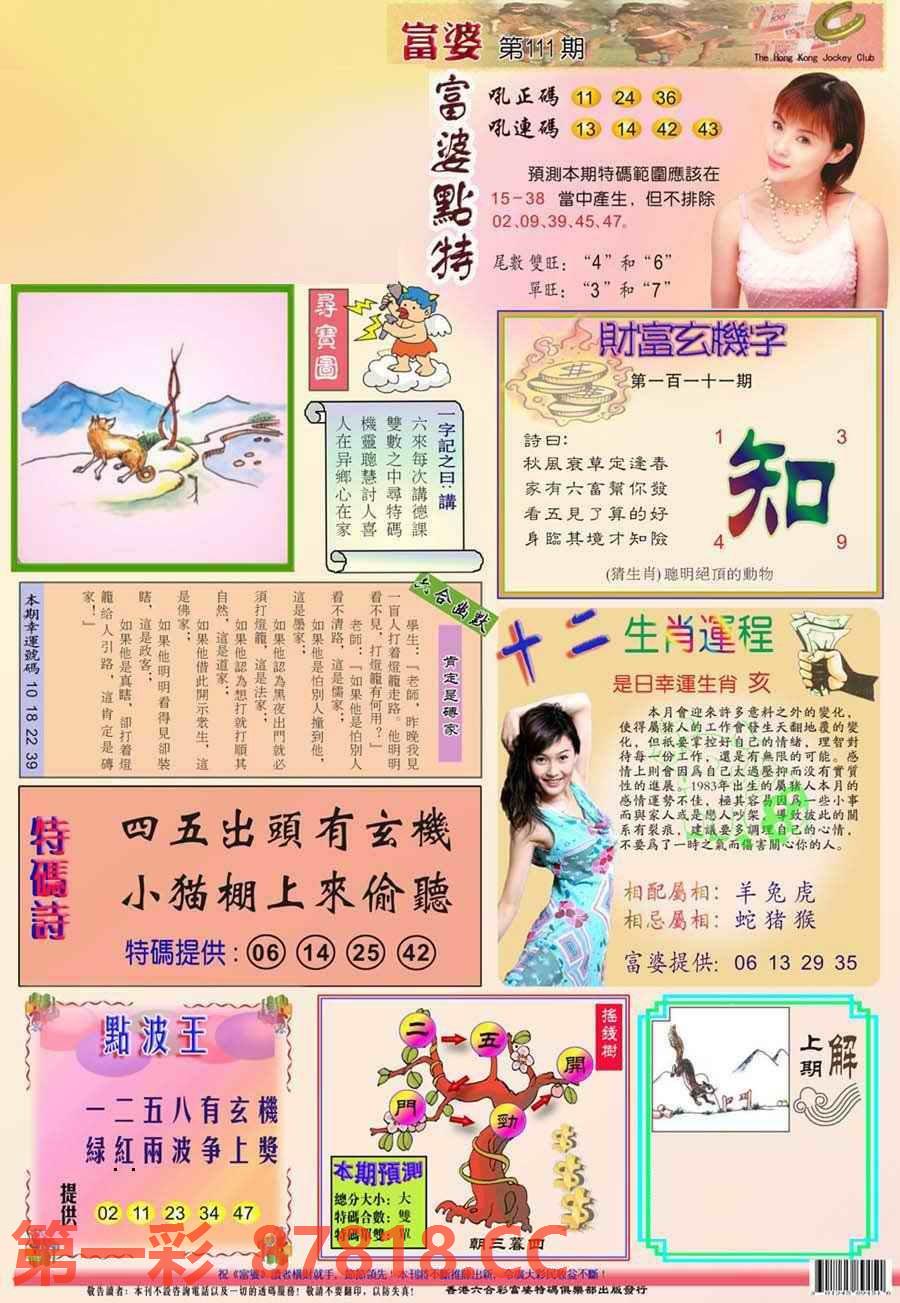 富婆 第111期
The Hong Kong Jockey Club
富婆點特
吼正碼 11 24 36
吼連碼 13 14 42 43
預測本期特碼範圍應該在
15-38 當中產生，但不排除
02,09,39,45,47。
尾數雙旺：“4”和“6”
單旺：“3”和“7”
尋寶圖
一字記之曰：講
六來每次講德課
雙數之中尋特碼
機靈聰慧討人喜
人在异鄉心在家
財富玄機字
第一百一十一期
詩曰：
秋風衰草定逢春
家有六畜幫你發
看五見了算的好
身臨其境才知險
1 3
知
4 9
(猜生肖)聰明絕頂的動物
六合幽默
肯定是磚家
學生：「老師，昨晚我見
一盲人打着燈籠走路。他明明
看不見，打燈籠有何用？」
老師：「如果他是怕別人
看不清路，這是儒家；
如果他是怕別人撞到他，
這是墨家；
如果他認為黑夜出門就必
須打燈籠，這是法家；
如果他認為想打就打順其
自然，這是道家；
如果他借此開示眾生，這
是佛家；
如果他明明看得見卻裝
瞎，這是政客；
如果他是真瞎，卻打着燈
籠給人引路，這肯定是磚
家！」
本期幸運號碼 10 18 22 39
十二生肖運程
是日幸運生肖 亥
本月會迎來許多意料之外的變化，
使得屬猪人的工作會發生天翻地覆的變
化，但祇要掌控好自己的情緒，理智對
待每一份工作，還是有無限的可能。感
情上則會因爲自己太過壓抑而沒有實質
性的進展。1983年出生的屬猪人本月的
感情運勢不佳，極其容易因爲一些小事
而與家人或是戀人吵架，導致彼此的關
系有裂痕，建議要多調理自己的心情，
不要爲了一時之氣而傷害關心你的人。
相配屬相：羊兔虎
相忌屬相：蛇猪猴
富婆提供：06 13 29 35
特碼詩
四五出頭有玄機
小猫棚上來偷聽
特碼提供：06 14 25 42
點波王
一二五八有玄機
綠紅兩波争上獎
提供 02 11 23 34 47
搖錢樹
二 五 開 門 勁
本期預測
總分大小：大
特碼合數：雙
特碼單雙：單
朝三暮四
上期解
第一彩 87818.CC
敬告讀者：本刊不設咨詢電話以及一切的透碼服務！敬請不要翻印，以防失真！
香港六合彩富婆特碼俱樂部出版發行